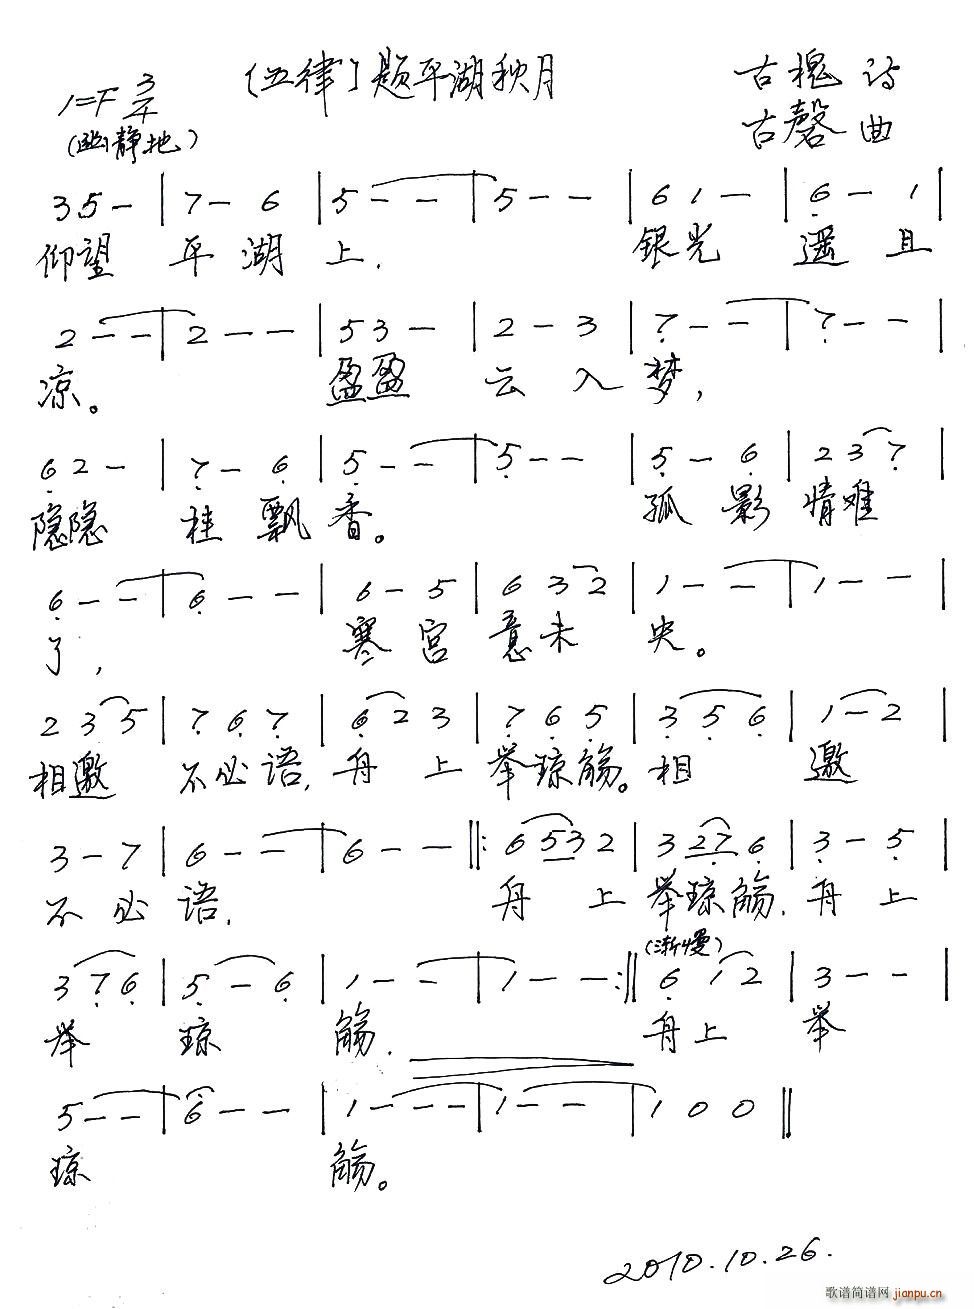 1=F 3/4
〔五律〕题平湖秋月
古槐 诗
古磬 曲
(幽静地)
3 5 - | 7 - 6 | 5 - - | 5 - - | 6 1 - | 6 - 1 |
仰望 平 湖 上, 银光 遥 且
2 - - | 2 - - | 5 3 - | 2 - 3 | 7 - - | 7 - - |
凉。 盈盈 云 入 梦,
6 2 - | 7 - 6 | 5 - - | 5 - - | 5 - 6 | 2 3 7 |
隐隐 桂 飘 香。 孤 影 情难
6 - - | 6 - - | 6 - 5 | 6 3 2 | 1 - - | 1 - - |
了, 寒 宫 意未 央。
2 3 5 | 7 6 7 | 6 2 3 | 7 6 5 | 3 5 6 | 1 - 2 |
相邀 不必语, 舟 上 举琼觞。相 邀
3 - 7 | 6 - - | 6 - - ‖: 6 5 3 2 | 3 2 7 6 | 3 - 5 |
不 必 语, 舟 上 举琼觞, 舟 上
(渐慢)
3 7 6 | 5 - 6 | 1 - - | 1 - - :‖ 6 1 2 | 3 - - |
举 琼 觞. 舟上 举
5 - - | 6 - - | 1 - - - | 1 - - | 1 0 0 ‖
琼 觞。
2010.10.26.
歌谱简谱网 jianpu.cn